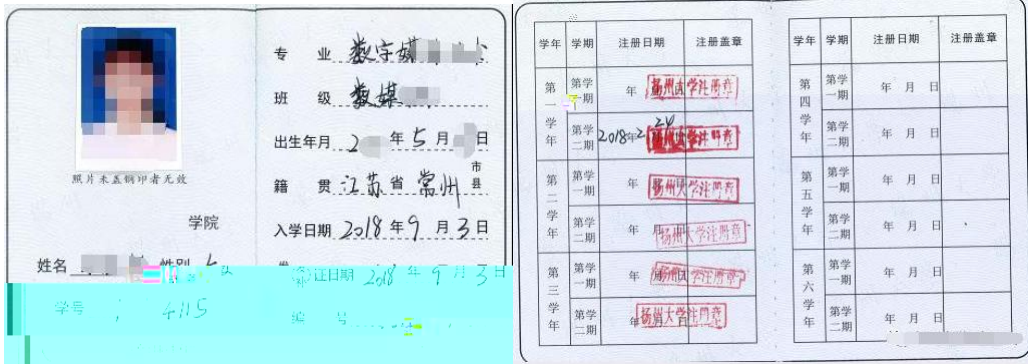 照片未盖钢印者无效
学院
姓名 性别
学号 4115
专业 数字媒
班级 数媒
出生年月 2 年 5 月 日
籍贯 江苏省 常州 市县
入学日期 2018 年 9 月 3 日
证日期 2018 9 月 3 日
编号
学年 学期 注册日期 注册盖章
第一学年 第学一期 年 月 日 扬州大学注册章
第学二期 2018年2 24 扬州大学注册章
第二学年 第学一期 年 月 日 扬州大学注册章
第学二期 年 月 日 扬州大学注册章
第三学年 第学一期 年 月 日 扬州大学注册章
第学二期 年 月 日 扬州大学注册章
学年 学期 注册日期 注册盖章
第四学年 第学一期 年 月 日
第学二期 年 月 日
第五学年 第学一期 年 月 日
第学二期 年 月 日
第六学年 第学一期 年 月 日
第学二期 年 月 日